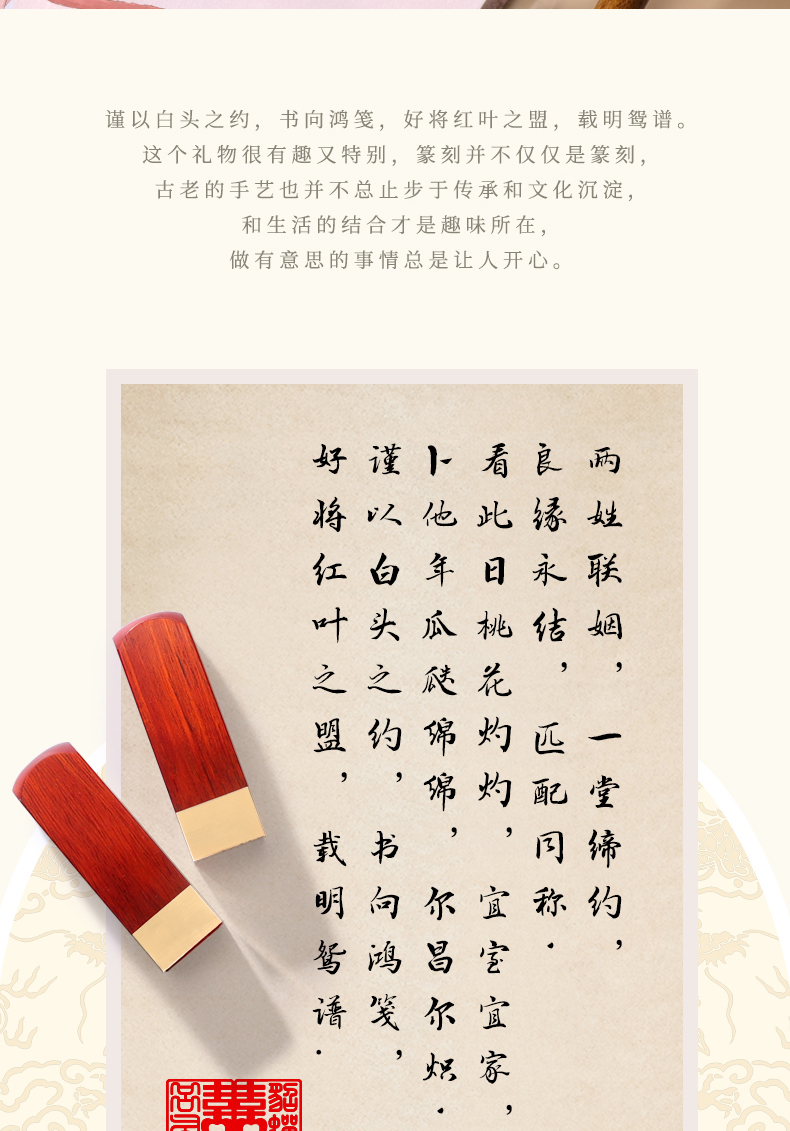 谨以白头之约，书向鸿笺，好将红叶之盟，载明鸳谱。
这个礼物很有趣又特别，篆刻并不仅仅是篆刻，
古老的手艺也并不总止步于传承和文化沉淀，
和生活的结合才是趣味所在，
做有意思的事情总是让人开心。
两姓联姻，一堂缔约，
良缘永结，匹配同称.
看此日桃花灼灼，宜室宜家，
卜他年瓜瓞绵绵，尔昌尔炽.
谨以白头之约，书向鸿笺，
好将红叶之盟，载明鸳谱.